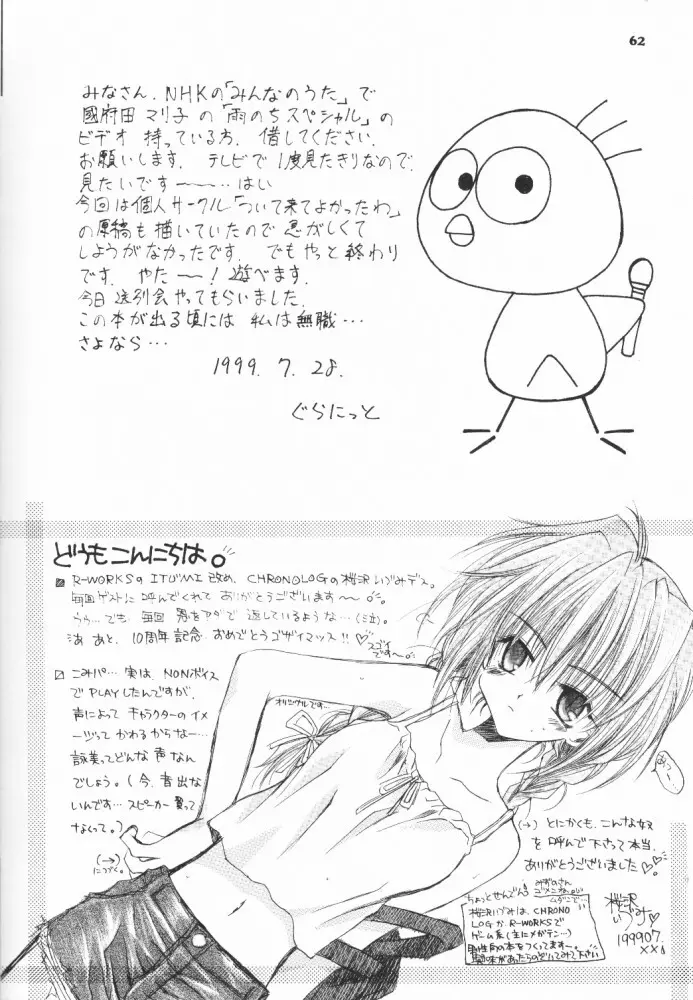 62
みなさん、NHKの「みんなのうた」で
國府田マリ子の「雨のちスペシャル」の
ビデオ持っている方、借してください。
お願いします。テレビで1度見たきりなので、
見たいです〜〜…はい
今回は個人サークル「ついて来てよかったわ」
の原稿も描いていたので忙がしくて
しょうがなかったです。でもやっと終わり
です。やた〜!遊べます。
今日送別会やってもらいました。
この本が出る頃には私は無職…
さよなら…
1999.7.28.
ぐらにっと
どうもこんにちは。
R-WORKSのITUMI改め、CHRONOLOGの桜沢いづみデス。
毎回ゲストに呼んでくれてありがとうございます〜〜。
うぅ…でも毎回恩をアダで返しているような…(泣)
あ あと、10周年記念おめでとうゴザイマッス!!♡
スゴイ
です〜。
こみパ…実はNONボイス
でPLAYしたんですが、
声によってキャラクターのイメ
ージってかわるからなー…
詠美ってどんな声なん
でしょう。(今、音出な
いんです…スピーカー買って
なくって。)
(→)
につづく。
オリジナルです…
(→)とにかくも、こんな奴
を呼んで下さって本当、
ありがとうございました♡♡
ちょっとせんでん
みずのさん
ゴメンなさい
桜沢いづみは、CHRONO
LOGか、R-WORKSで
ゲーム系(主にメガテン…)
男性向の本をつくってます〜。
桜沢
いづみ♡
199907.
××